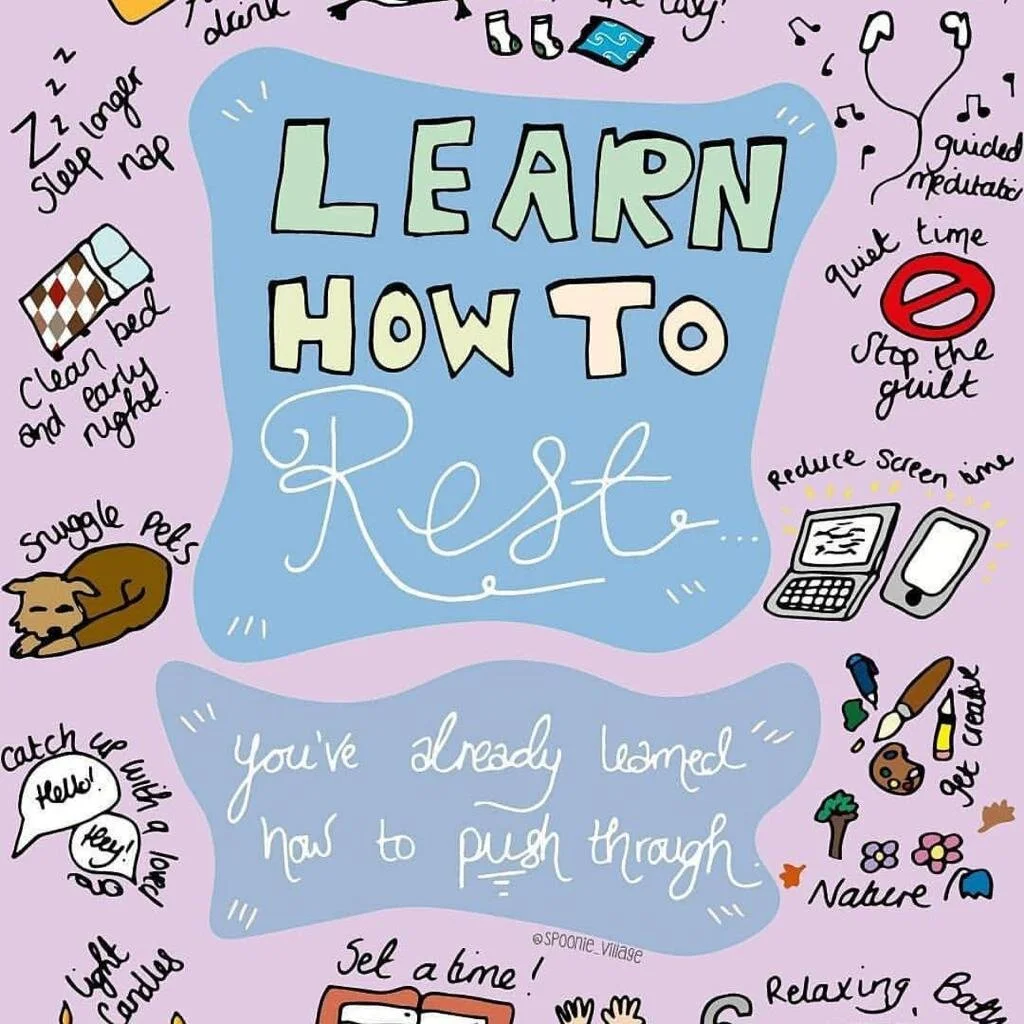 drink
Zzzz
Sleep longer
nap
Clean bed
and early
night.
Snuggle pets
Catch up with a loved
Hello!
Hey!
Light
Candles
LEARN
HOW TO
Rest...
you've already learned
how to push through.
@SPOONIE_VILLAGE
Set a time!
guided
quiet time
Stop the
guilt
Reduce screen time
get creative
Nature
Relaxing